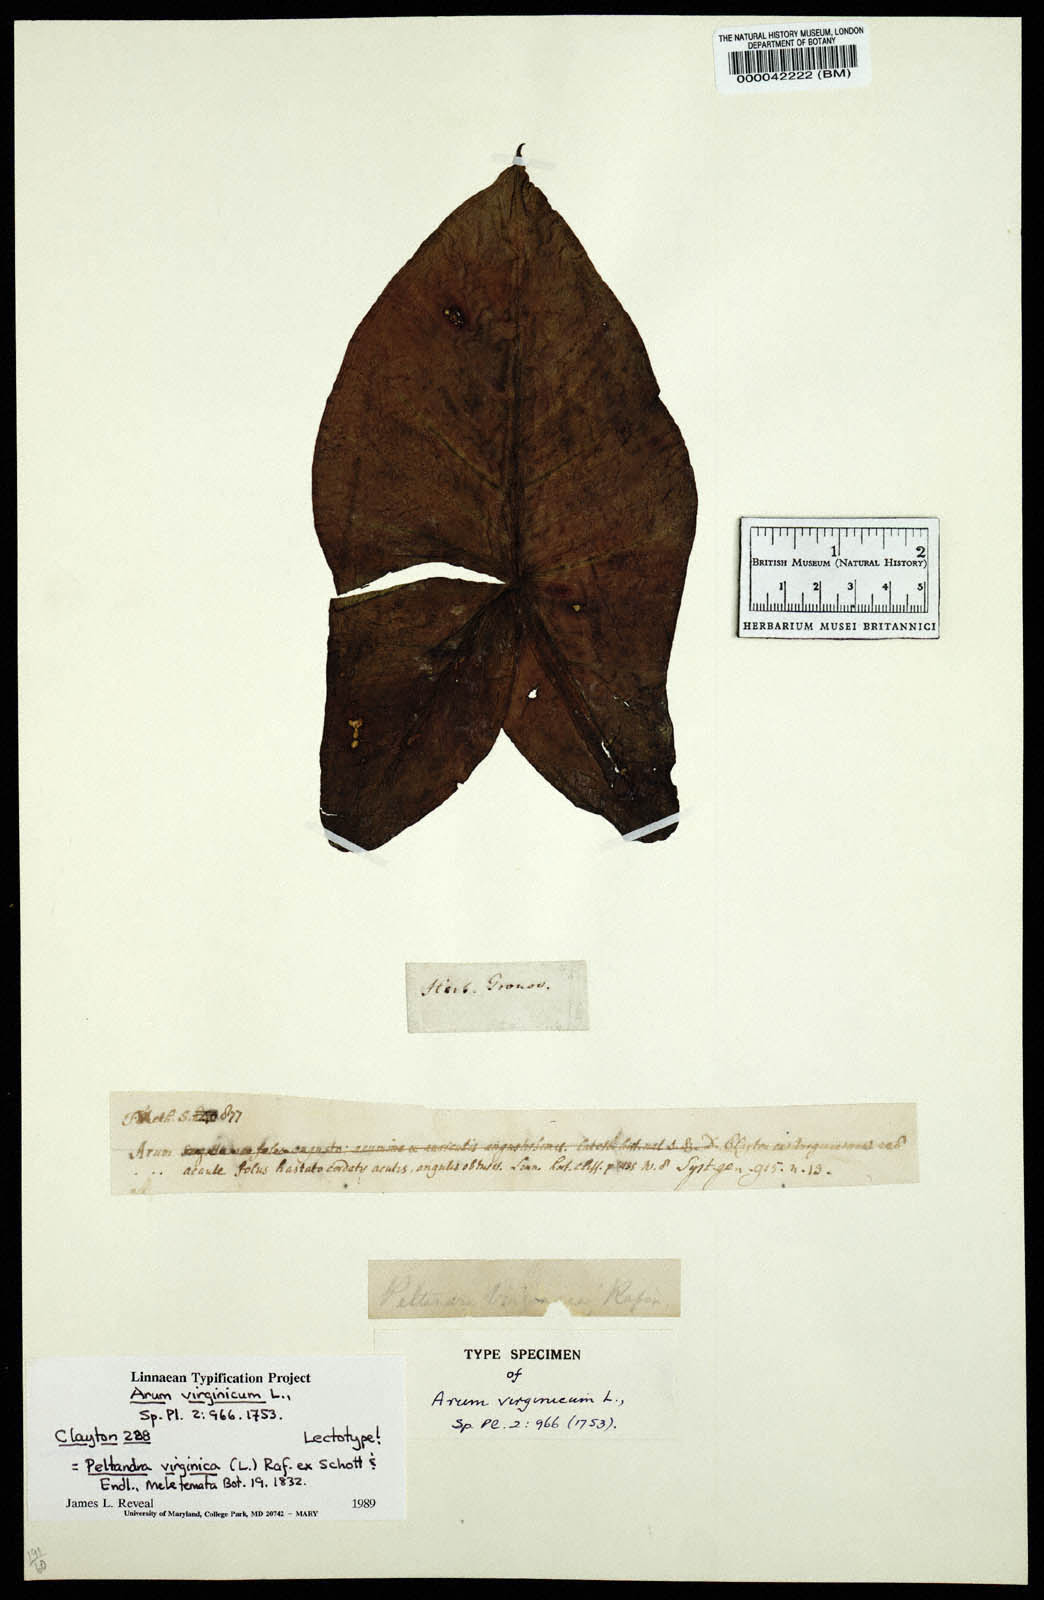 THE NATURAL HISTORY MUSEUM, LONDON
DEPARTMENT OF BOTANY
000042222 (BM)
1 2
BRITISH MUSEUM (NATURAL HISTORY)
1 2 3 4 5
HERBARIUM MUSEI BRITANNICI
Herb. Gronov.
877
Arum
acaule foliis hastato cordatis acutis, angulis obtusis. Linn. hort. Cliff. p. 435 N. 8 Syst. gen. 915. n. 13.
Peltandra Rafin.
TYPE SPECIMEN
of
Arum virginicum L.,
Sp. Pl. 2: 966 (1753).
Linnaean Typification Project
Arum virginicum L.,
Sp. Pl. 2: 966. 1753.
Clayton 228 Lectotype!
= Peltandra virginica (L.) Raf. ex Schott &
Endl., Meletemata Bot. 19. 1832.
James L. Reveal 1989
University of Maryland, College Park, MD 20742 – MARY
191
60